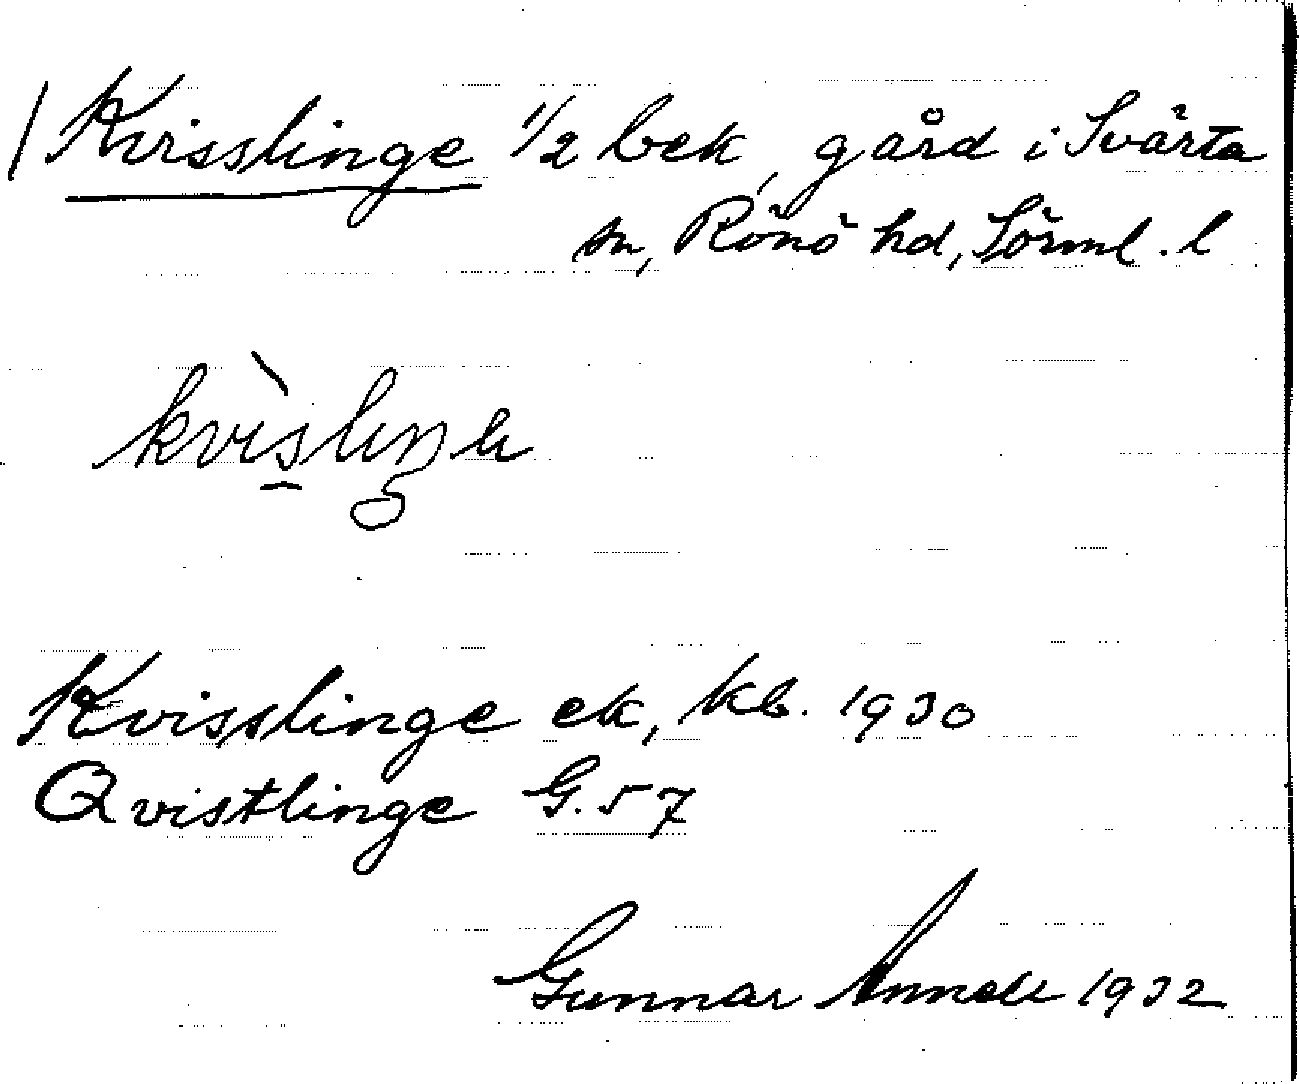 Kvisslinge 1/2 bek, gård i Svärta
sn, Rönö hd, Sörml. l
kvìsliŋe
Kvisslinge ek, kb. 1930
Qvistlinge G. 57
Gunnar Annell 1932